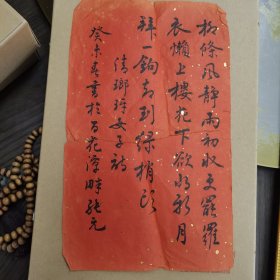 柳條風靜雨初收又罷羅
衣懶上樓花下欲爲新月
拜一鉤市到綠梢頭
清瑯琊女子詩
癸未春書於百花潭畔 元